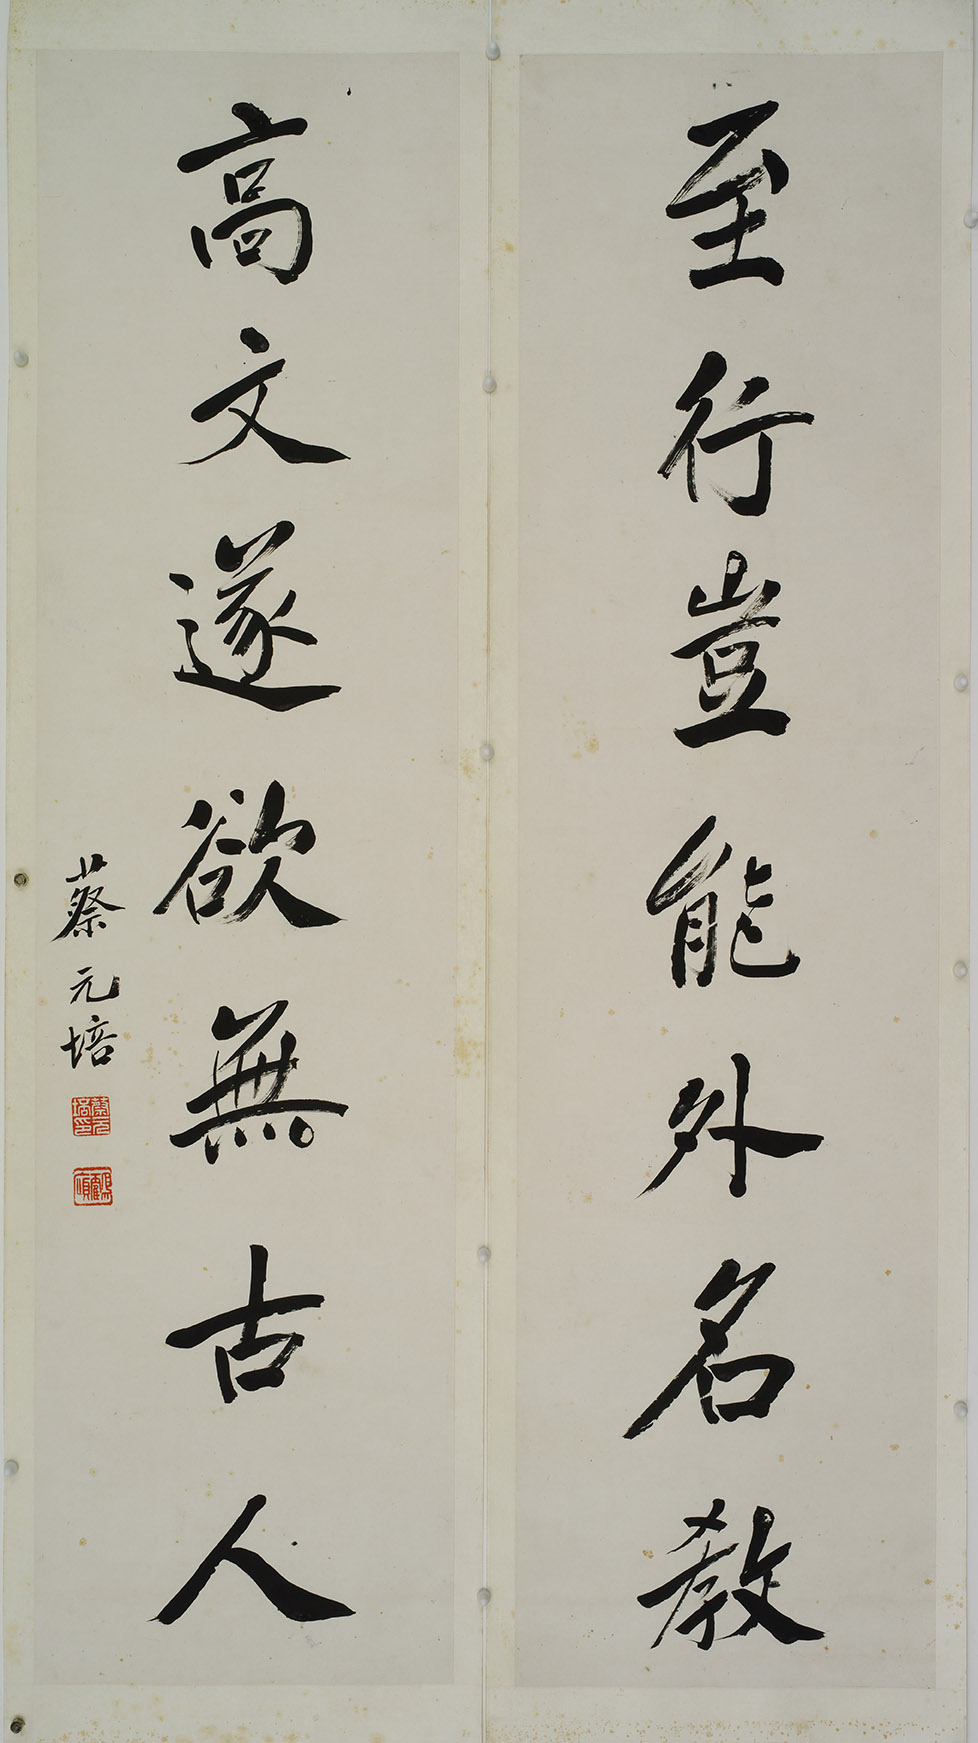 至行豈能外名教
高文遂欲無古人
蔡元培
蔡元培印